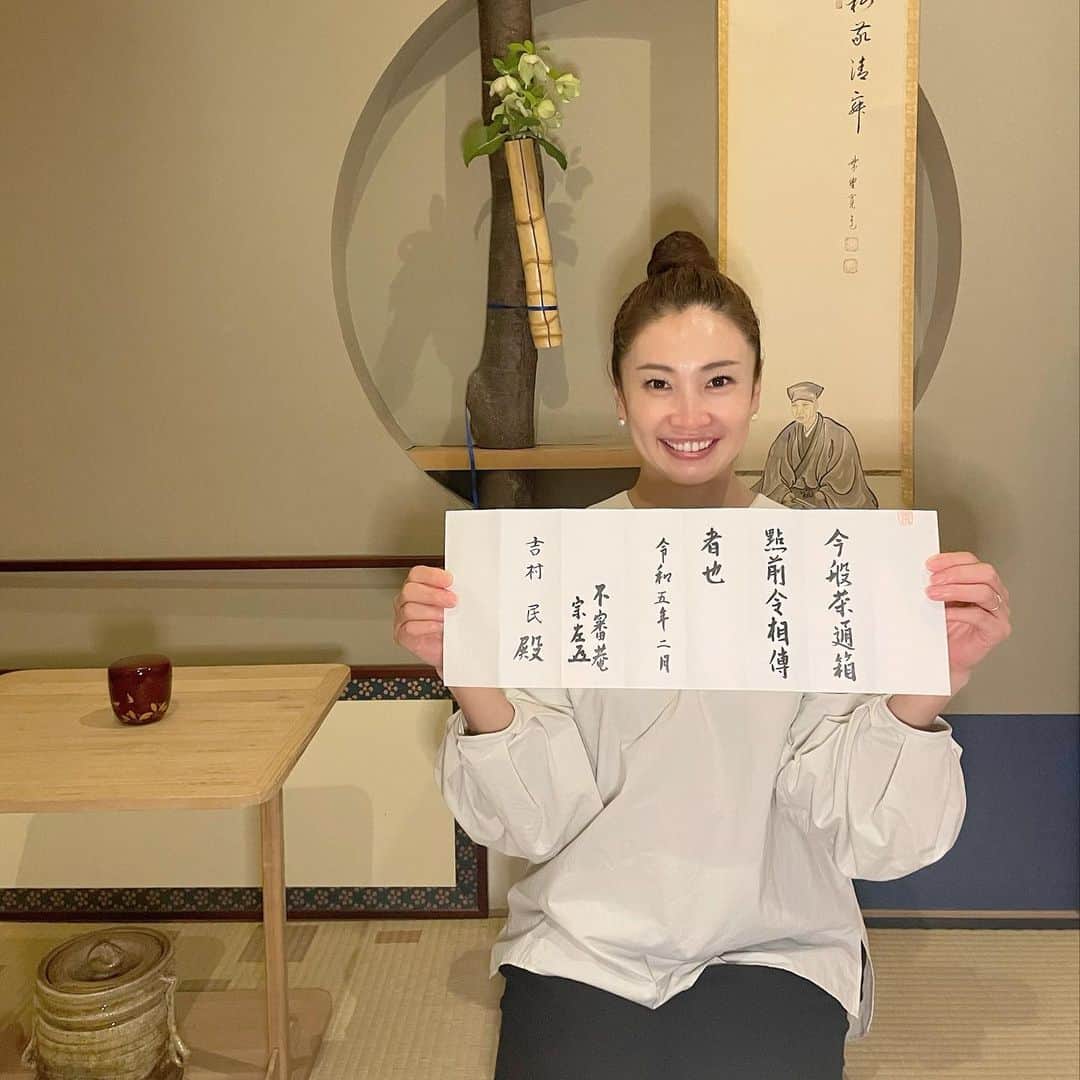 和敬清寂
今般茶通箱
點前令相傳
者也
令和五年二月
不審菴
宗左
吉村 民殿